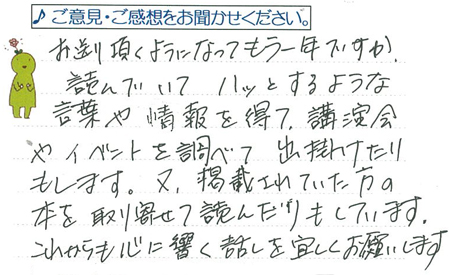 ♪ご意見・ご感想をお聞かせください。
お送り頂くようになってもう一年ですか、
読んでいて ハッとするような
言葉や情報を得て、講演会
やイベントを調べて 出掛けたり
もします。又、掲載されていた方の
本を取り寄せて読んだりもしています。
これからも心に響く話しを宜しくお願いします